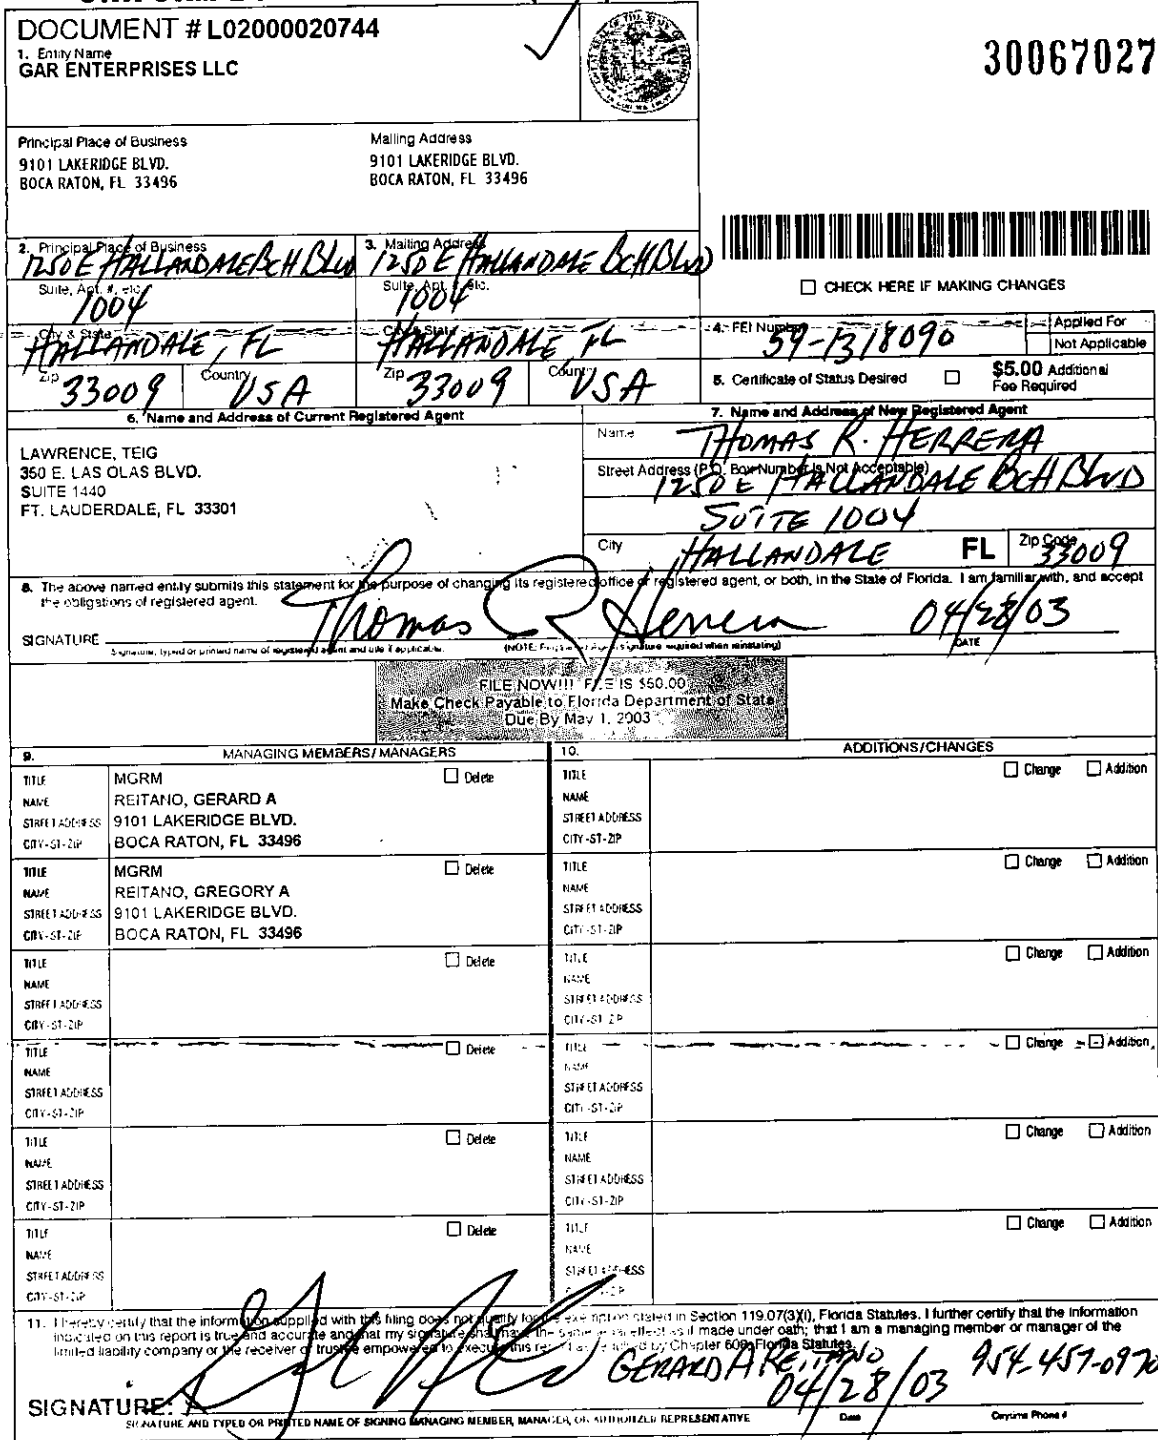 DOCUMENT # L02000020744
1. Entity Name
GAR ENTERPRISES LLC
30067027
Principal Place of Business
9101 LAKERIDGE BLVD.
BOCA RATON, FL 33496
Mailing Address
9101 LAKERIDGE BLVD.
BOCA RATON, FL 33496
2. Principal Place of Business
1250 E HALLANDALE BCH BLVD
Suite, Apt. #, etc.
1004
City & State
HALLANDALE, FL
Zip
33009
Country
USA
3. Mailing Address
1250 E HALLANDALE BCH BLVD
Suite, Apt. #, etc.
1004
City & State
HALLANDALE, FL
Zip
33009
Country
USA
CHECK HERE IF MAKING CHANGES
4. FEI Number
59-1318090
Applied For
Not Applicable
5. Certificate of Status Desired
$5.00 Additional
Fee Required
6. Name and Address of Current Registered Agent
LAWRENCE, TEIG
350 E. LAS OLAS BLVD.
SUITE 1440
FT. LAUDERDALE, FL 33301
7. Name and Address of New Registered Agent
Name
THOMAS R. HERRERA
Street Address (P.O. Box Number Is Not Acceptable)
1250 E HALLANDALE BCH BLVD
SUITE 1004
City
HALLANDALE
FL
Zip Code
33009
8. The above named entity submits this statement for the purpose of changing its registered office or registered agent, or both, in the State of Florida. I am familiar with, and accept
the obligations of registered agent.
SIGNATURE
Thomas R Herrera
04/28/03
Signature, typed or printed name of registered agent and title if applicable.
(NOTE: Registered Agent signature required when reinstating)
DATE
FILE NOW!!! FEE IS $50.00
Make Check Payable to Florida Department of State
Due By May 1, 2003
9. MANAGING MEMBERS/MANAGERS
10. ADDITIONS/CHANGES
TITLE MGRM Delete
NAME REITANO, GERARD A
STREET ADDRESS 9101 LAKERIDGE BLVD.
CITY-ST-ZIP BOCA RATON, FL 33496
TITLE Change Addition
NAME
STREET ADDRESS
CITY-ST-ZIP
TITLE MGRM Delete
NAME REITANO, GREGORY A
STREET ADDRESS 9101 LAKERIDGE BLVD.
CITY-ST-ZIP BOCA RATON, FL 33496
TITLE Change Addition
NAME
STREET ADDRESS
CITY-ST-ZIP
TITLE Delete
NAME
STREET ADDRESS
CITY-ST-ZIP
TITLE Change Addition
NAME
STREET ADDRESS
CITY-ST-ZIP
TITLE Delete
NAME
STREET ADDRESS
CITY-ST-ZIP
TITLE Change Addition
NAME
STREET ADDRESS
CITY-ST-ZIP
TITLE Delete
NAME
STREET ADDRESS
CITY-ST-ZIP
TITLE Change Addition
NAME
STREET ADDRESS
CITY-ST-ZIP
TITLE Delete
NAME
STREET ADDRESS
CITY-ST-ZIP
TITLE Change Addition
NAME
STREET ADDRESS
11. I hereby certify that the information supplied with this filing does not qualify for the exemption stated in Section 119.07(3)(i), Florida Statutes. I further certify that the information
indicated on this report is true and accurate and that my signature shall have the same legal effect as if made under oath; that I am a managing member or manager of the
limited liability company or the receiver or trustee empowered to execute this report as required by Chapter 608, Florida Statutes.
GERARD A REITANO
04/28/03
954-457-0970
SIGNATURE:
SIGNATURE AND TYPED OR PRINTED NAME OF SIGNING MANAGING MEMBER, MANAGER, OR AUTHORIZED REPRESENTATIVE
Date
Daytime Phone #